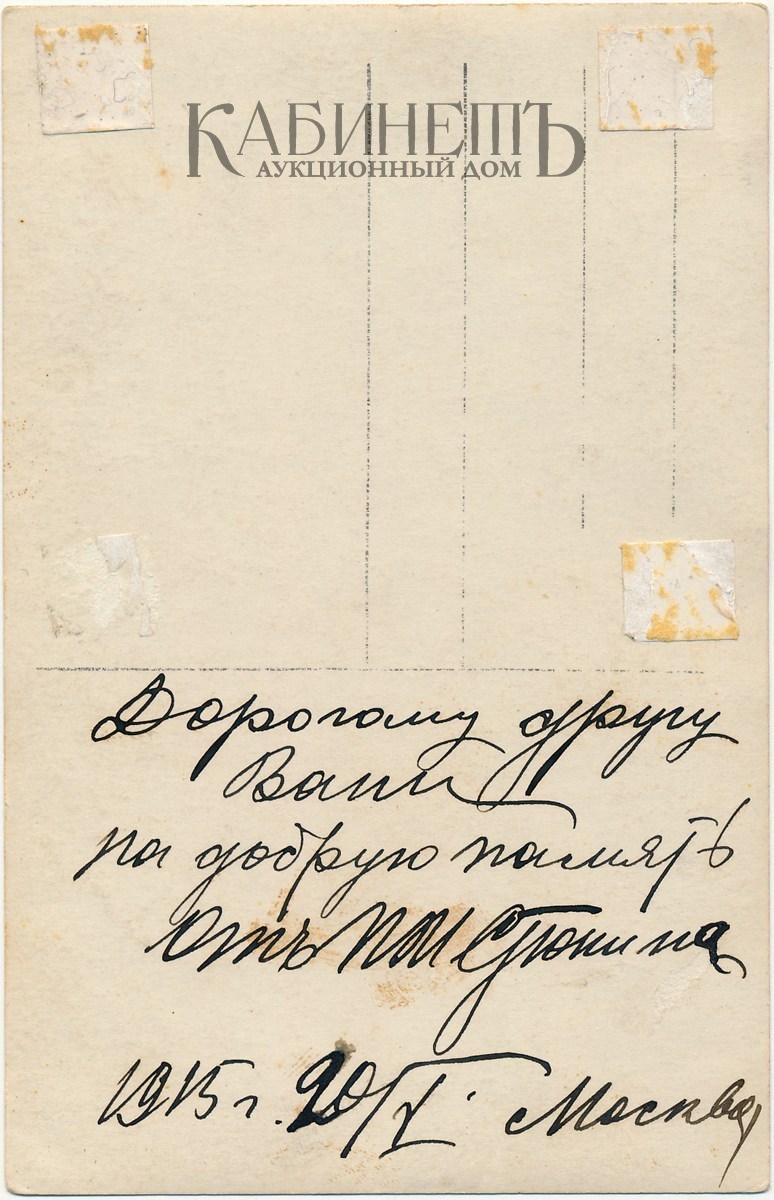 КАБИНЕТЪ
АУКЦИОННЫЙ ДОМ
Дорогому другу
Вани
на добрую память
Отъ Стюнина
1915 г. 20/V. Москва